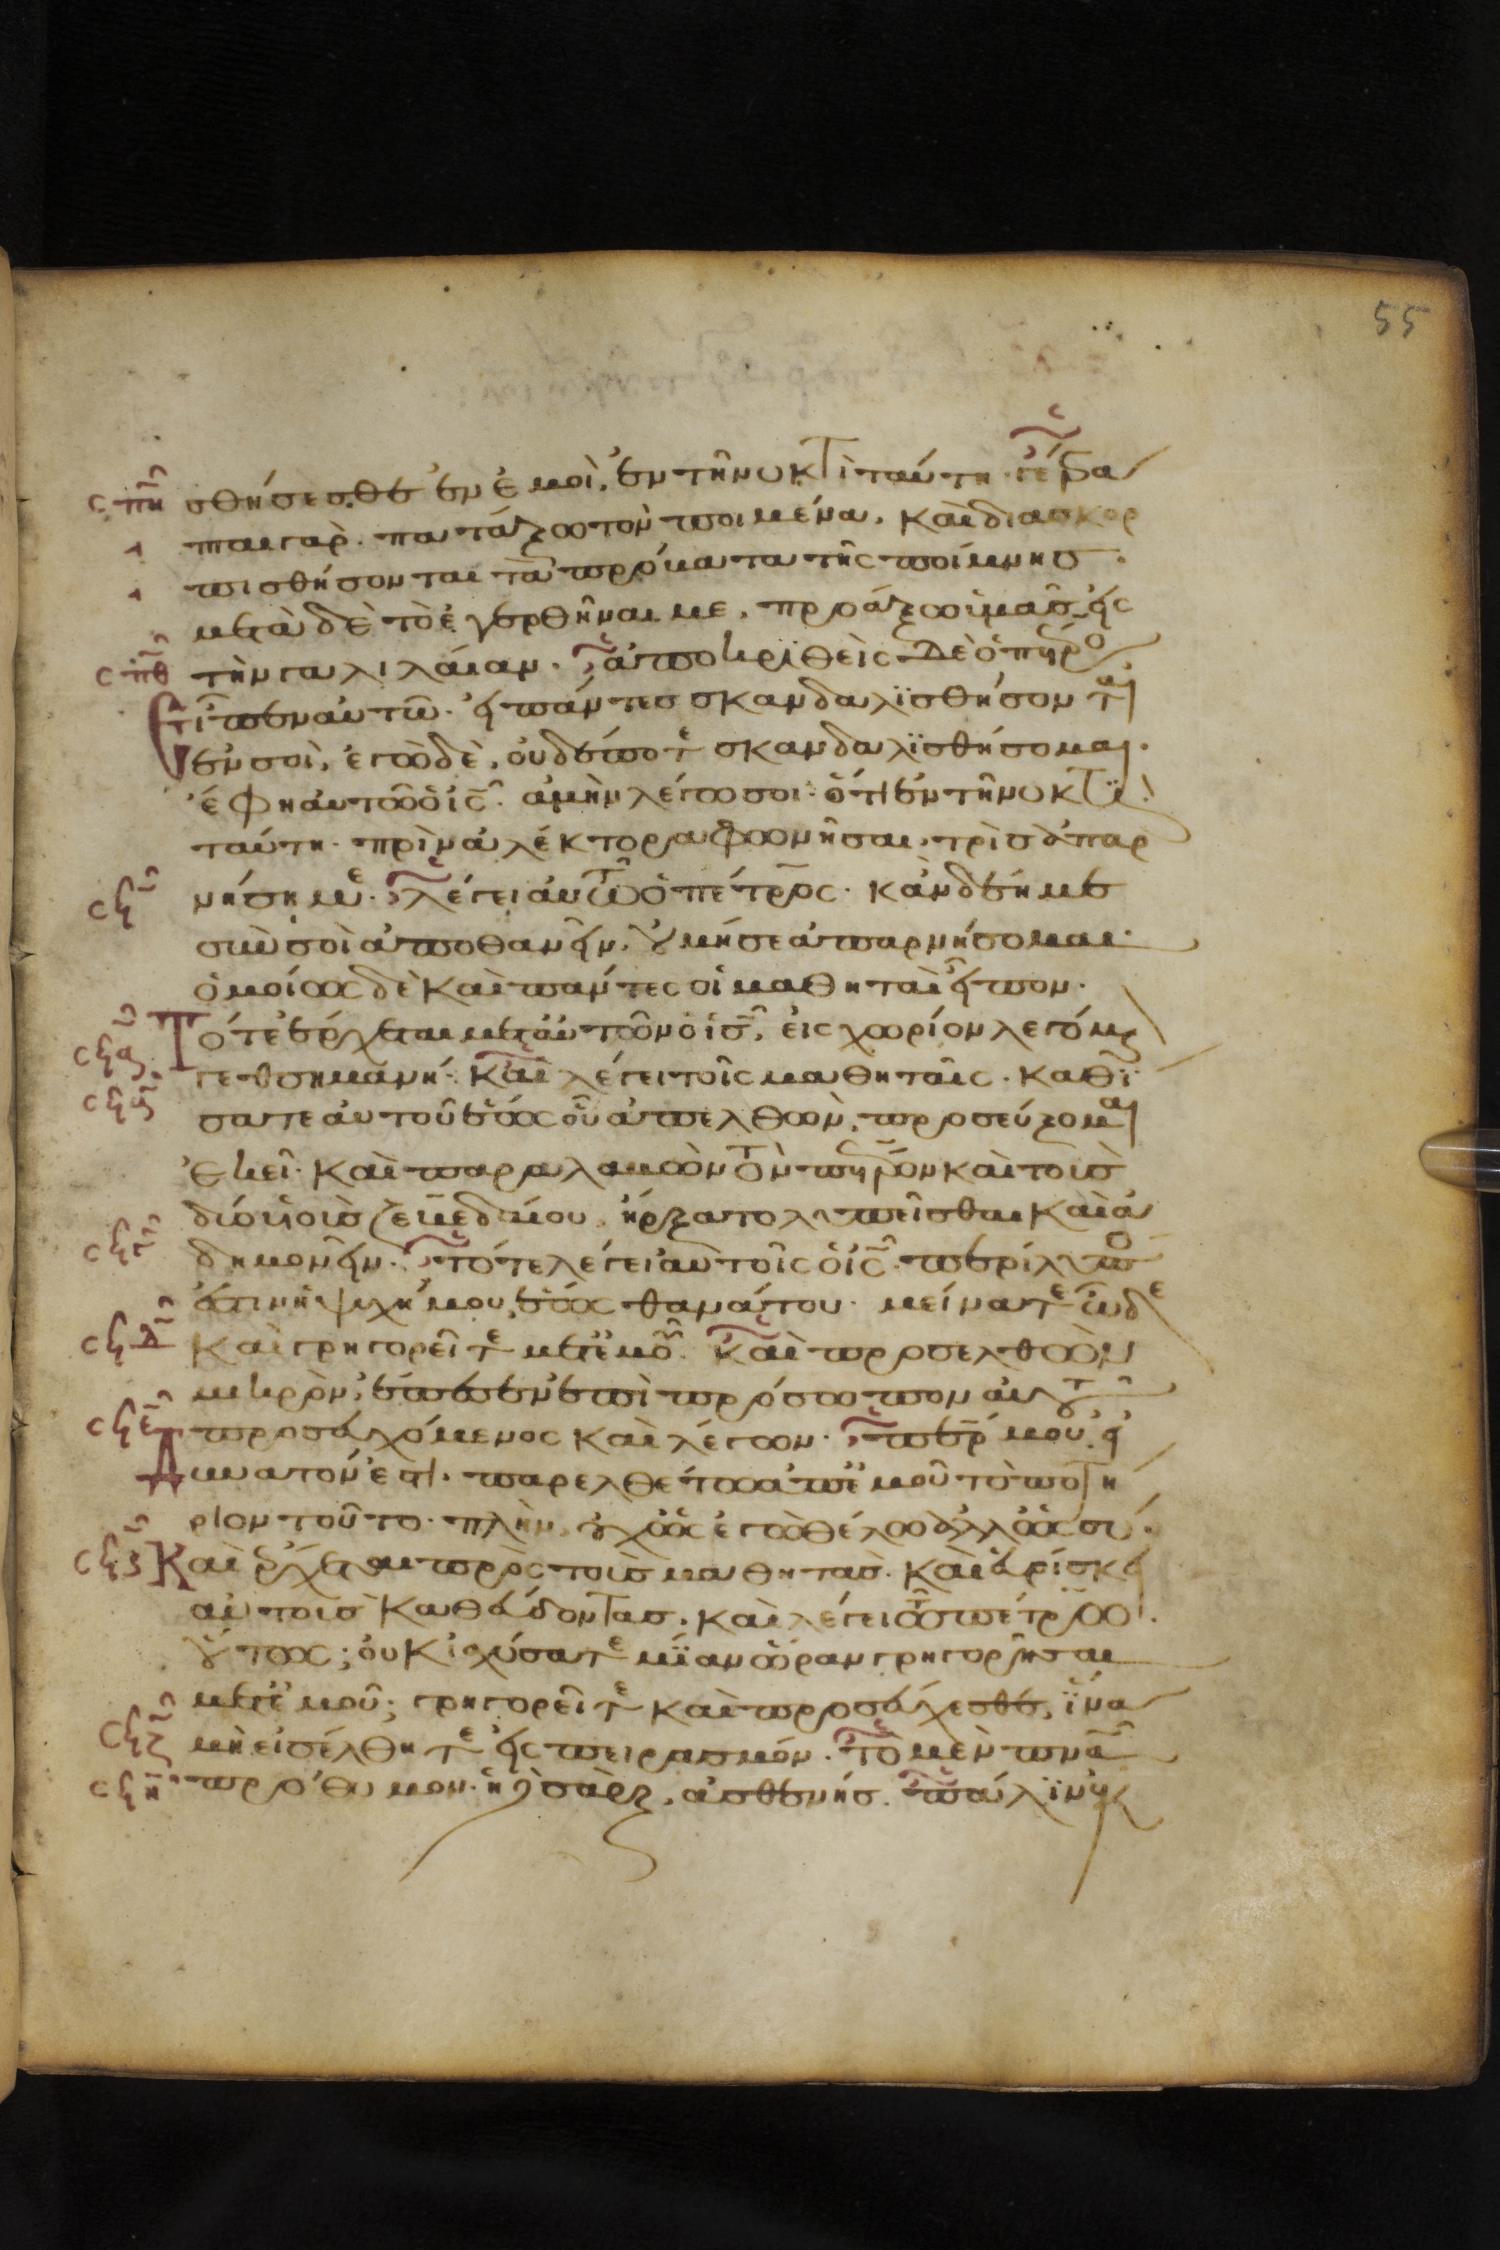 55
σπη σθήσεσθε ἐν ἐμοὶ, ἐν τῆ νυκτὶ ταύτη· γέγρα
πται γαρ· πατάξω τὸν ποιμένα, καὶ διασκορ
πισθήσονται τὰ πρόβατα τῆς ποίμνης·
μετὰ δὲ τὸ ἐγερθῆναι με, προάξω ὑμᾶς εἰς
σπθ τὴν γαλιλαίαν· ἀποκριθεὶς δὲ ὁ πέτρο
εἶπεν αὐτῶ· εἰ πάντες σκανδαλϊσθήσονται
ἐν σοὶ, ἐγὼ δὲ, οὐδέποτε σκανδαλϊσθήσομαι·
ἔφη αὐτῶ ὁ ἰς· ἀμὴν λέγω σοι· ὅτι ἐν τῆ νυκτϊ
ταύτη· πρὶν ἀλέκτορα φωνῆσαι, τρὶς ἀπαρ
σϟ νήση με· λέγει αὐτῶ ὁ πέτρος· κἂν δέη με
σὺν σοὶ ἀποθανεῖν, οὐ μή σε ἀπαρνήσομαι·
ὁμοίως δὲ καὶ πάντες οἱ μαθηταὶ εἶπον·
σϟα Τότε ἔρχεται μετ' αὐτῶν ὁ ἰς, εἰς χωρίον λεγόμε
σϟβ γεθσημανή· καὶ λέγει τοῖς μαθηταῖς· καθϊ
σατε αὐτοῦ ἕως οὗ ἀπελθὼν, προσεύξομαι
ἐκεῖ· καὶ παραλαβὼν τὸν πέτρον καὶ τοὺς
δύο υἱοὺς ζεβεδαίου, ἤρξατο λυπεῖσθαι καὶ ἀ
σϟγ δημονεῖν· τότε λέγει αὐτοῖς ὁ ἰς· περίλυπο
ἐστιν ἡ ψυχή μου, ἕως θανάτου· μείνατε ὧδε
σϟδ καὶ γρηγορεῖτε μετ' ἐμοῦ· καὶ προσελθὼν
μικρὸν, ἔπεσεν ἐπὶ πρόσωπον αὐτοῦ
σϟε προσευχόμενος καὶ λέγων· περ μου, εἰ
Δυνατόν ἐστι· παρελθέτω ἀπ' ἐμοῦ τὸ ποτή
ριον τοῦτο· πλὴν, οὐχ ὡς ἐγὼ θέλω ἀλλ' ὡς σύ·
σϟϛ Καὶ ἔρχεται πρὸς τοὺς μαθητὰς· καὶ εὑρίσκει
αὐτοὺς καθεύδοντας· καὶ λέγει τῶ πέτρω·
οὕτως; οὐκ ἰσχύσατε μϊαν ὥραν γρηγορῆσαι
μετ' ἐμοῦ; γρηγορεῖτε καὶ προσεύχεσθε, ἵνα
σϟζ μὴ εἰσέλθητε εἰς πειρασμόν· τὸ μὲν πνα
σϟη πρόθυμον· ἡ δὲ σὰρξ, ἀσθενής· πάλϊν ἐκ